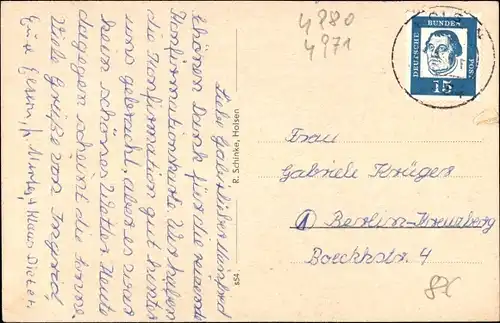 Liebe Gabi, lieber Manfred
Schönen Dank für die
Konfirmationskarte. Wir haben
die Konfirmation gut hinter
uns gebracht. Aber es war
kein schönes Wetter. Heute
dagegen scheint die Sonne.
Viele Grüße von Ingrid,
Eure + Klaus Dieter.
R. Schinke, Holsen
454
4880
4971
DEUTSCHE BUNDESPOST
15
Frau
Gabriele Krüger
1 Berlin-Kreuzberg
Boeckhstr. 4